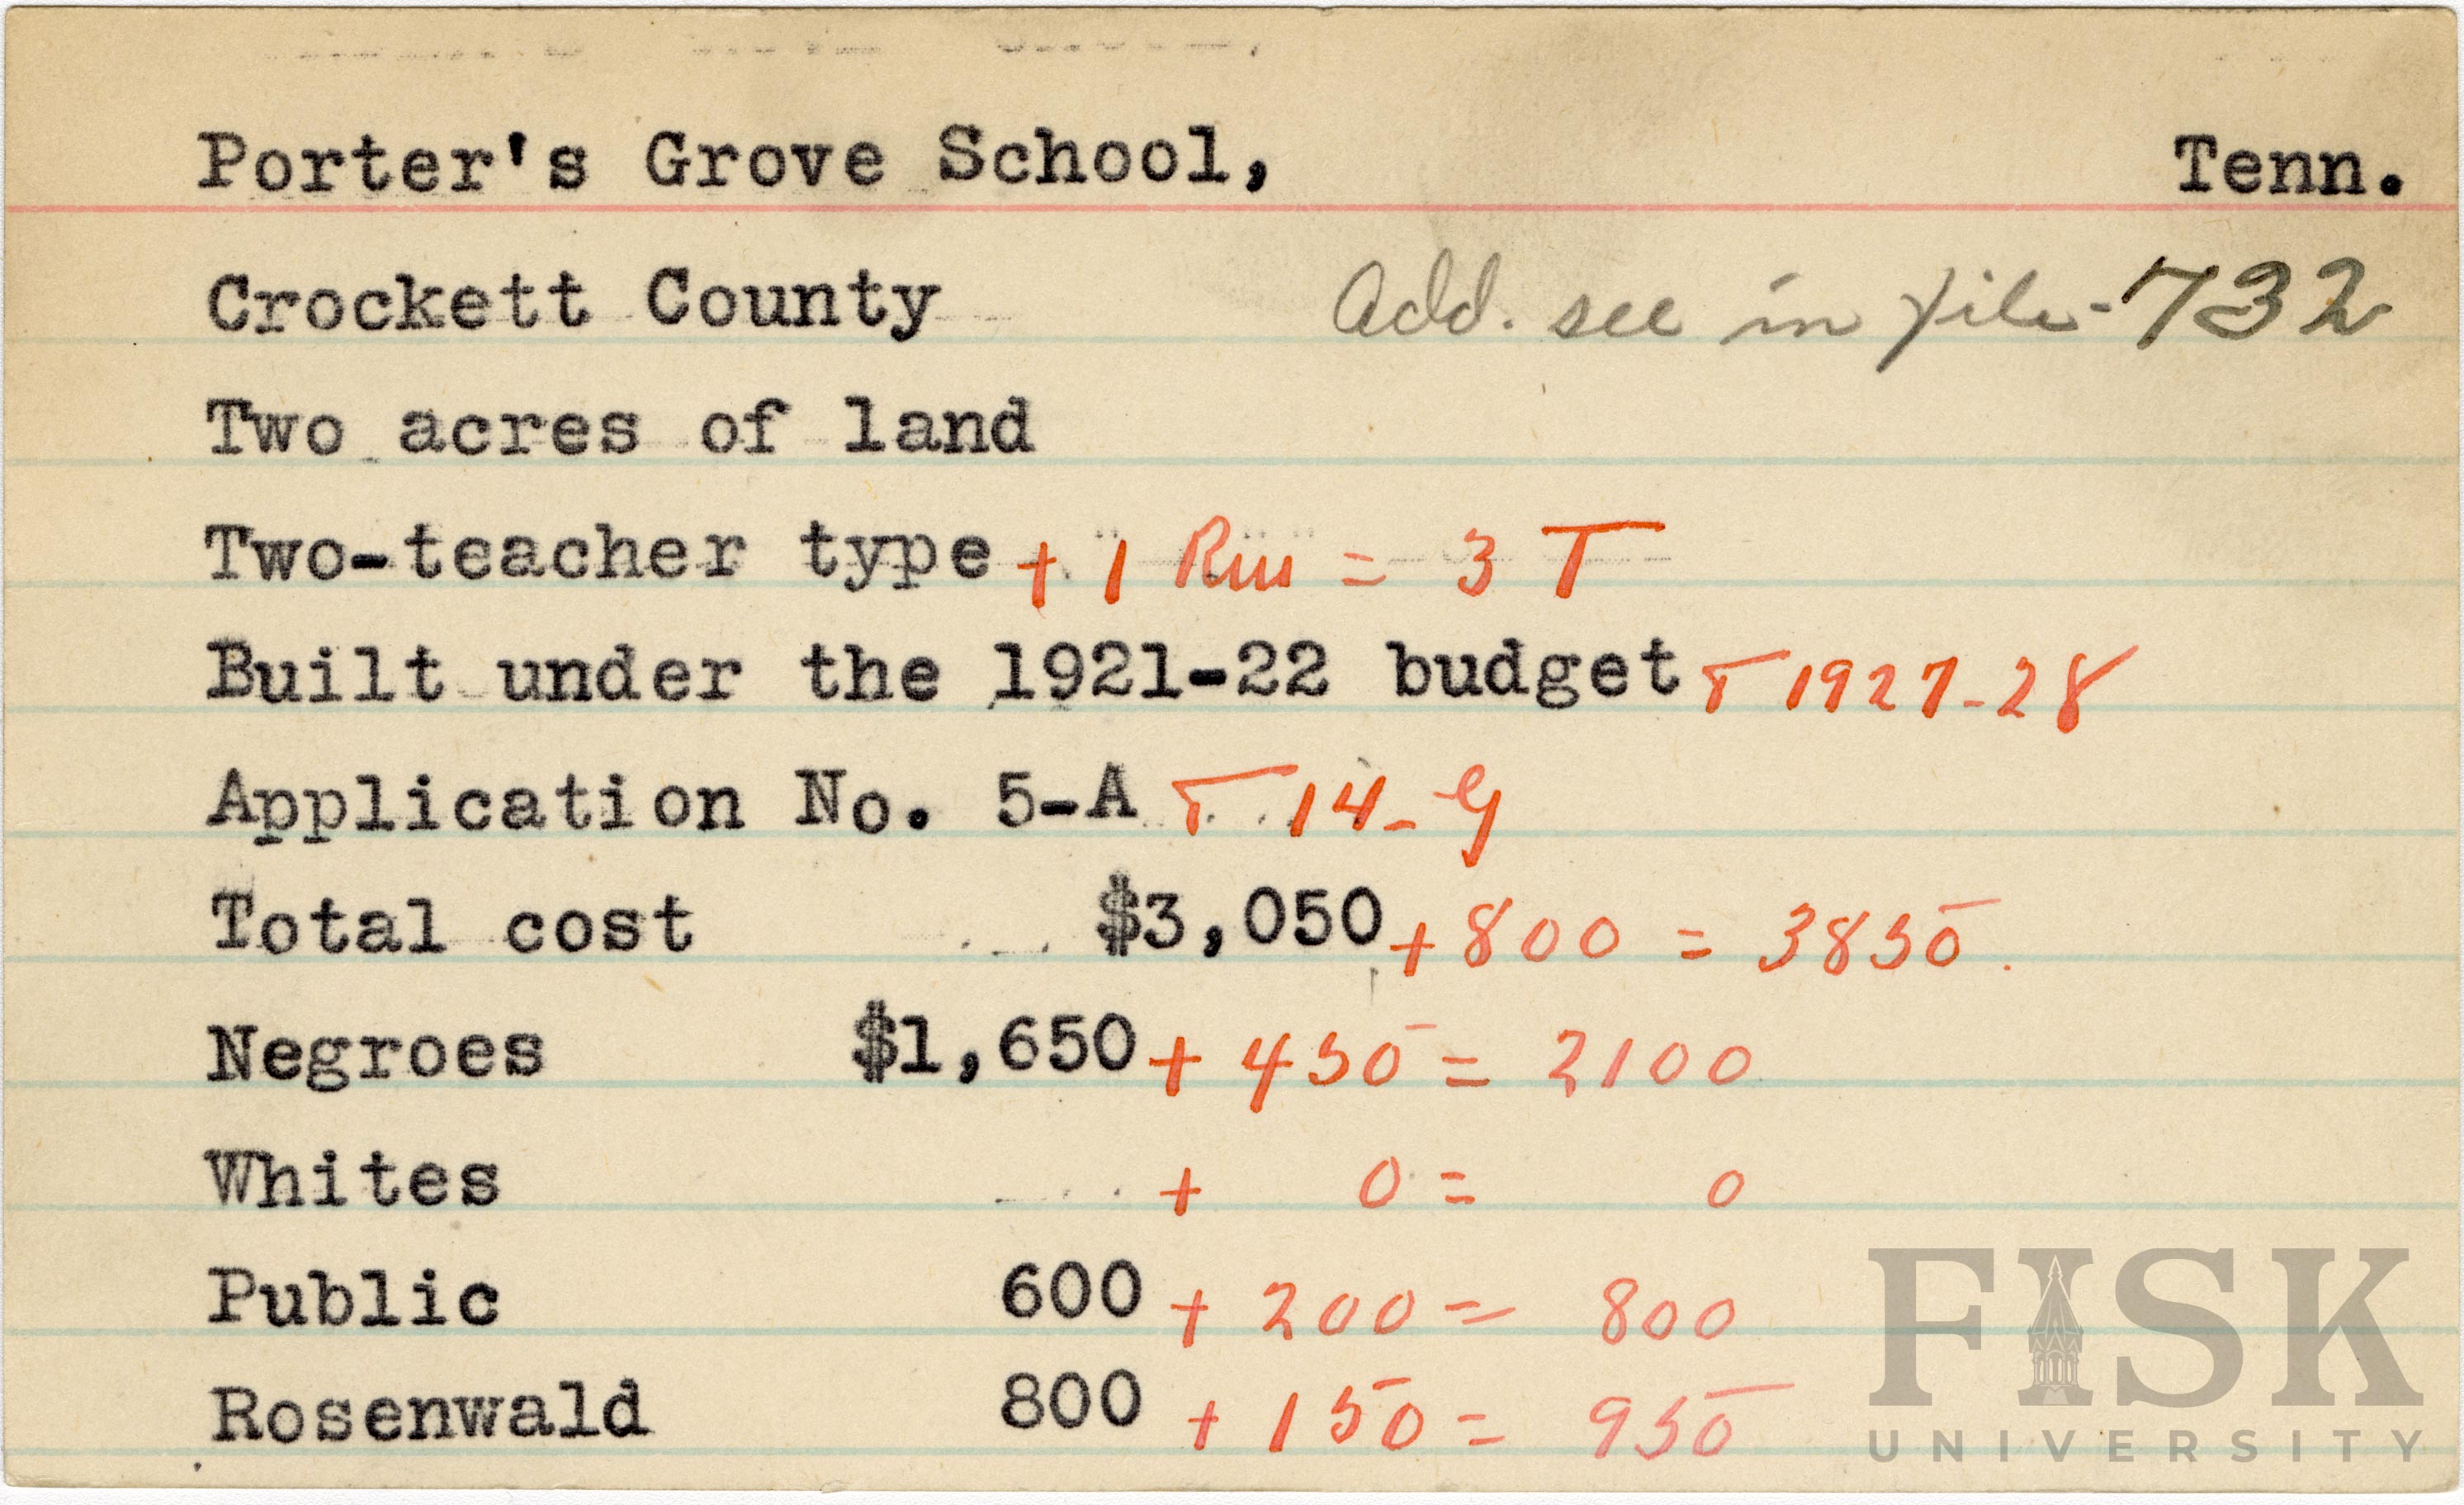 Porter's Grove School, Tenn.
Crockett County Add. see in file - 732
Two acres of land
Two-teacher type + 1 Rm = 3 T
Built under the 1921-22 budget T 1927-28
Application No. 5-A T 14-G
Total cost $3,050 + 800 = 3850.
Negroes $1,650 + 450 = 2100
Whites + 0 = 0
Public 600 + 200 = 800
Rosenwald 800 + 150 = 950
FISK
UNIVERSITY